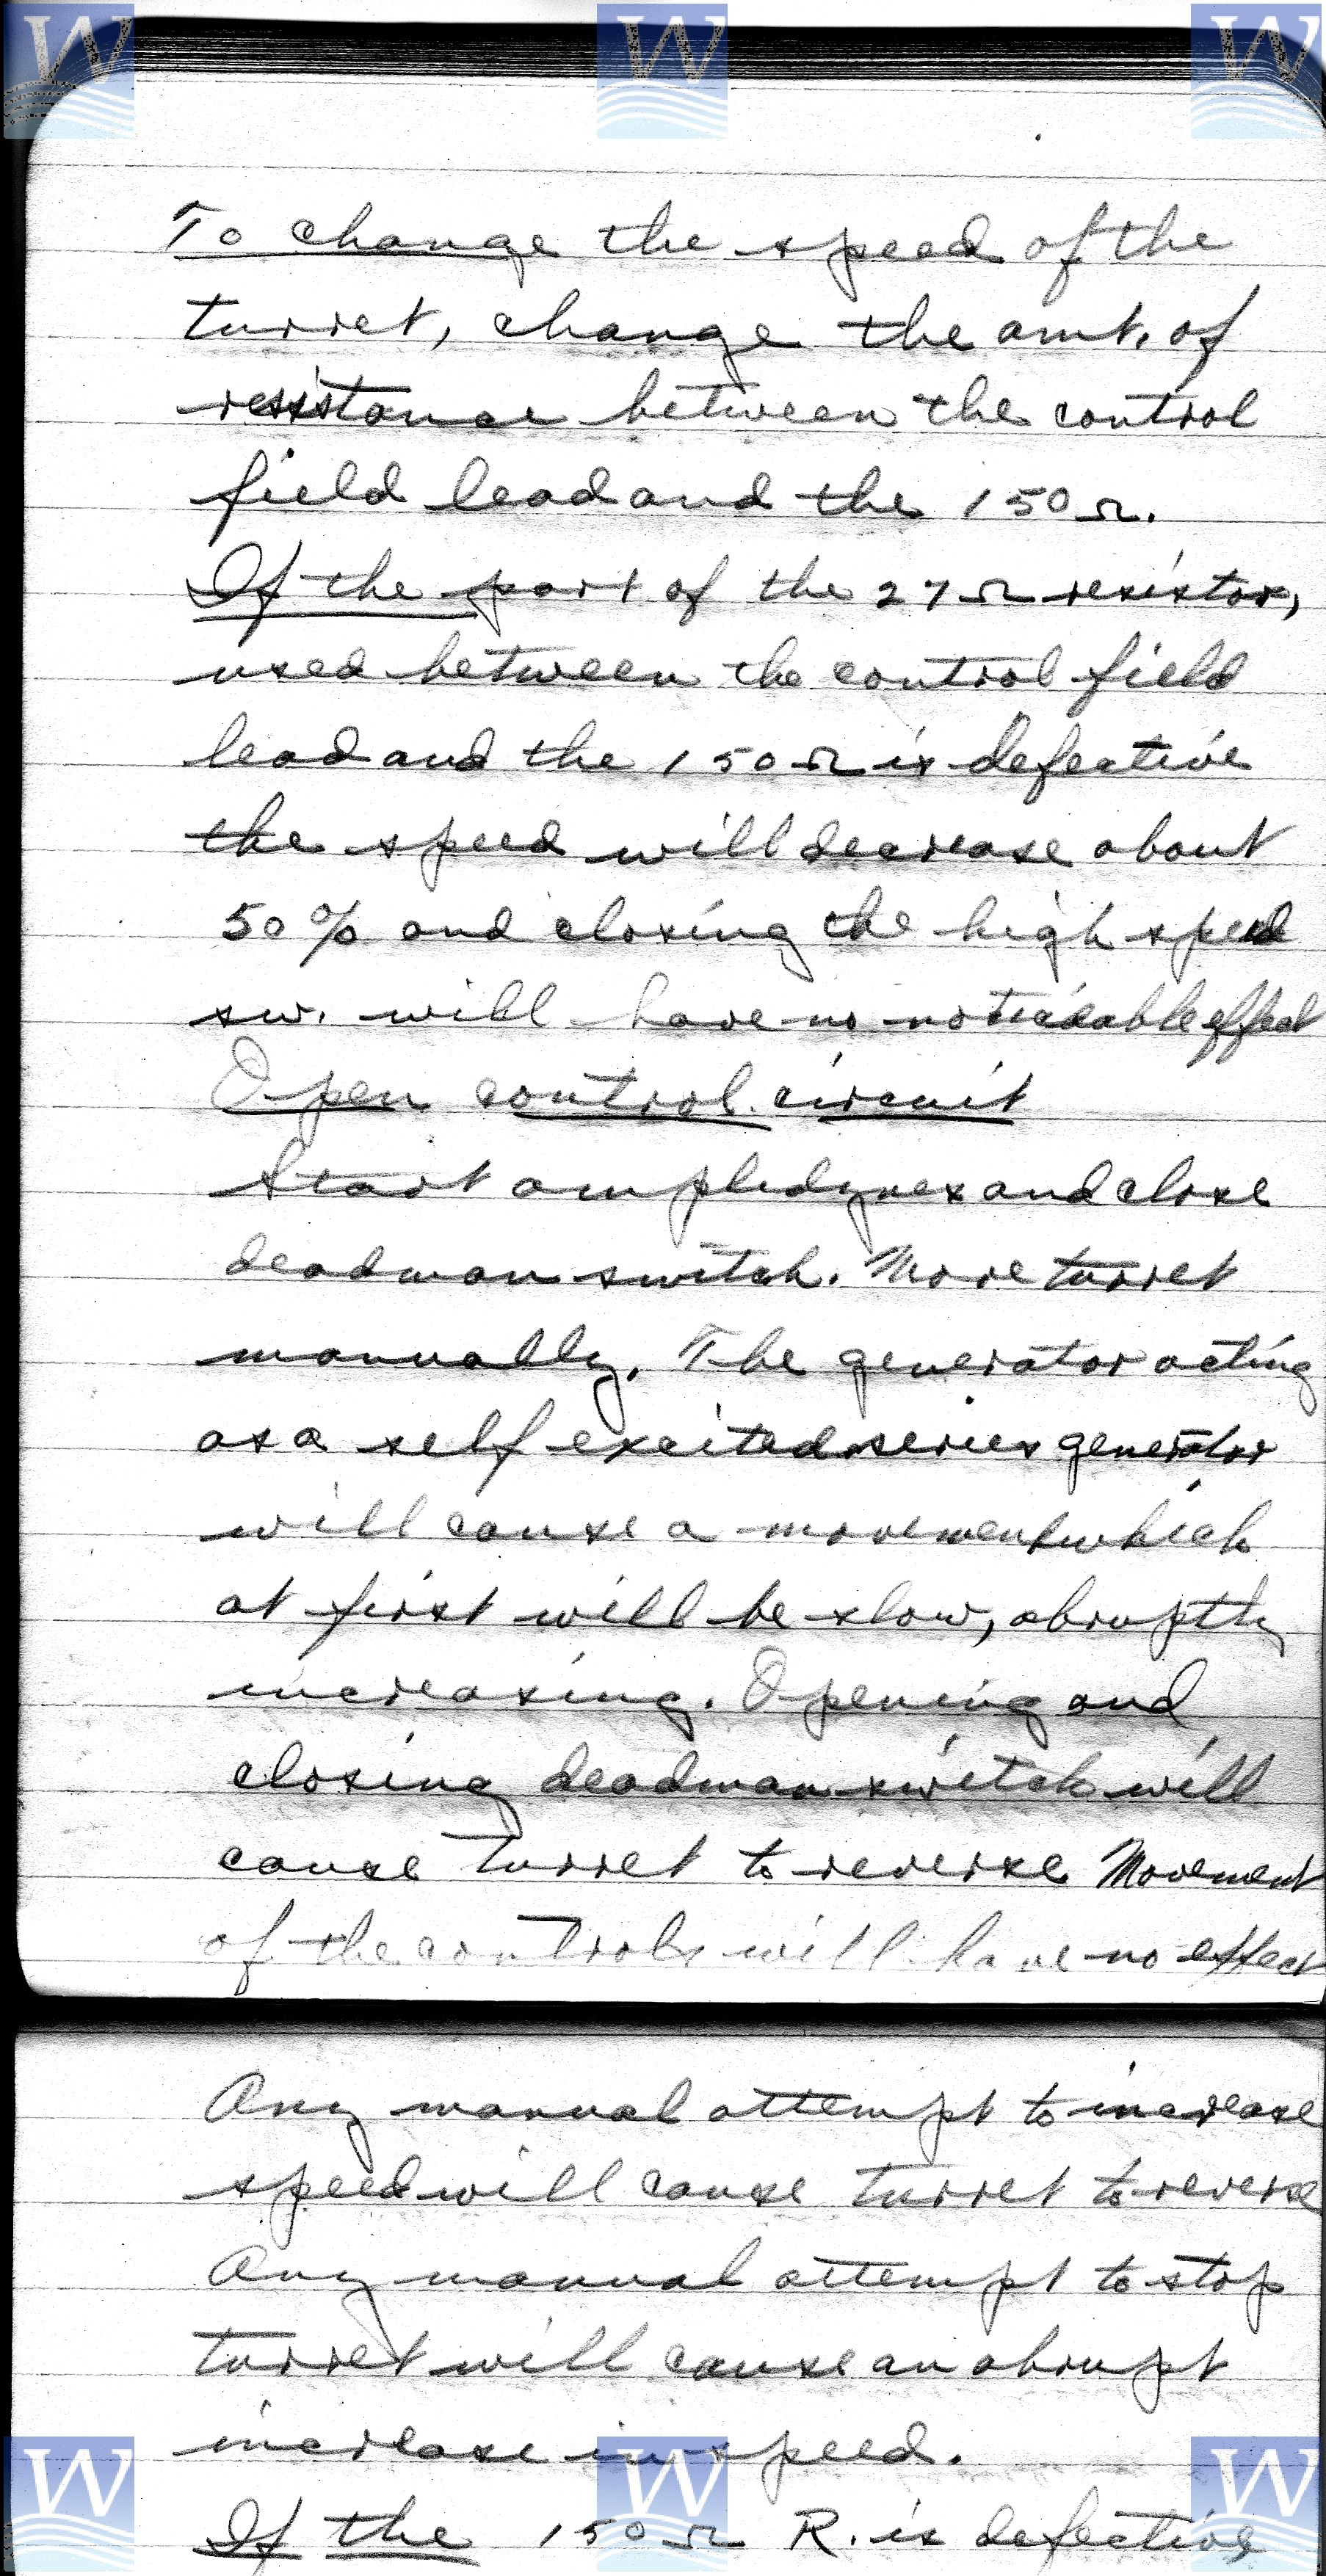 W W W
To change the speed of the
turret, change the amt. of
resistance between the control
field lead and the 150Ω.
If the part of the 27Ω resistor,
used between the control field
lead and the 150Ω is defective
the speed will decrease about
50% and closing the high speed
sw. will have no noticeable effect
Open control circuit
Start ampledynes and close
deadman switch. Move turret
manually. The generator acting
as a self excited series generator
will cause a movement which
at first will be slow, abruptly
increasing. Opening and
closing deadman switch will
cause turret to reverse Movement
of the controls will have no effect
Any manual attempt to increase
speed will cause turret to reverse
Any manual attempt to stop
turret will cause an abrupt
increase in speed.
W W W
If the 150Ω R. is defective